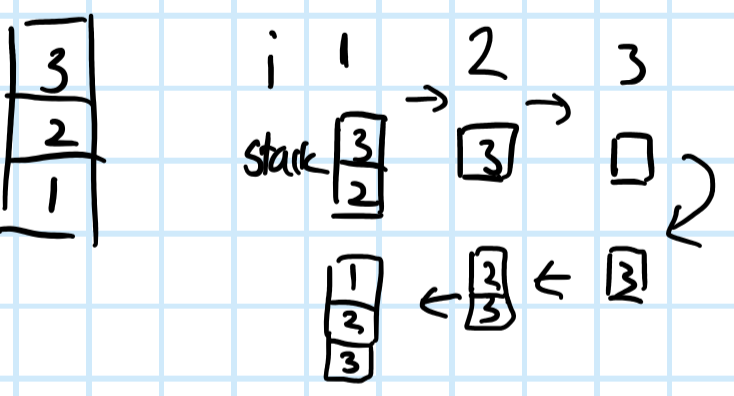 3
2
1
i 1 2 3
stack
3
2
3
1
2
3
2
3
3